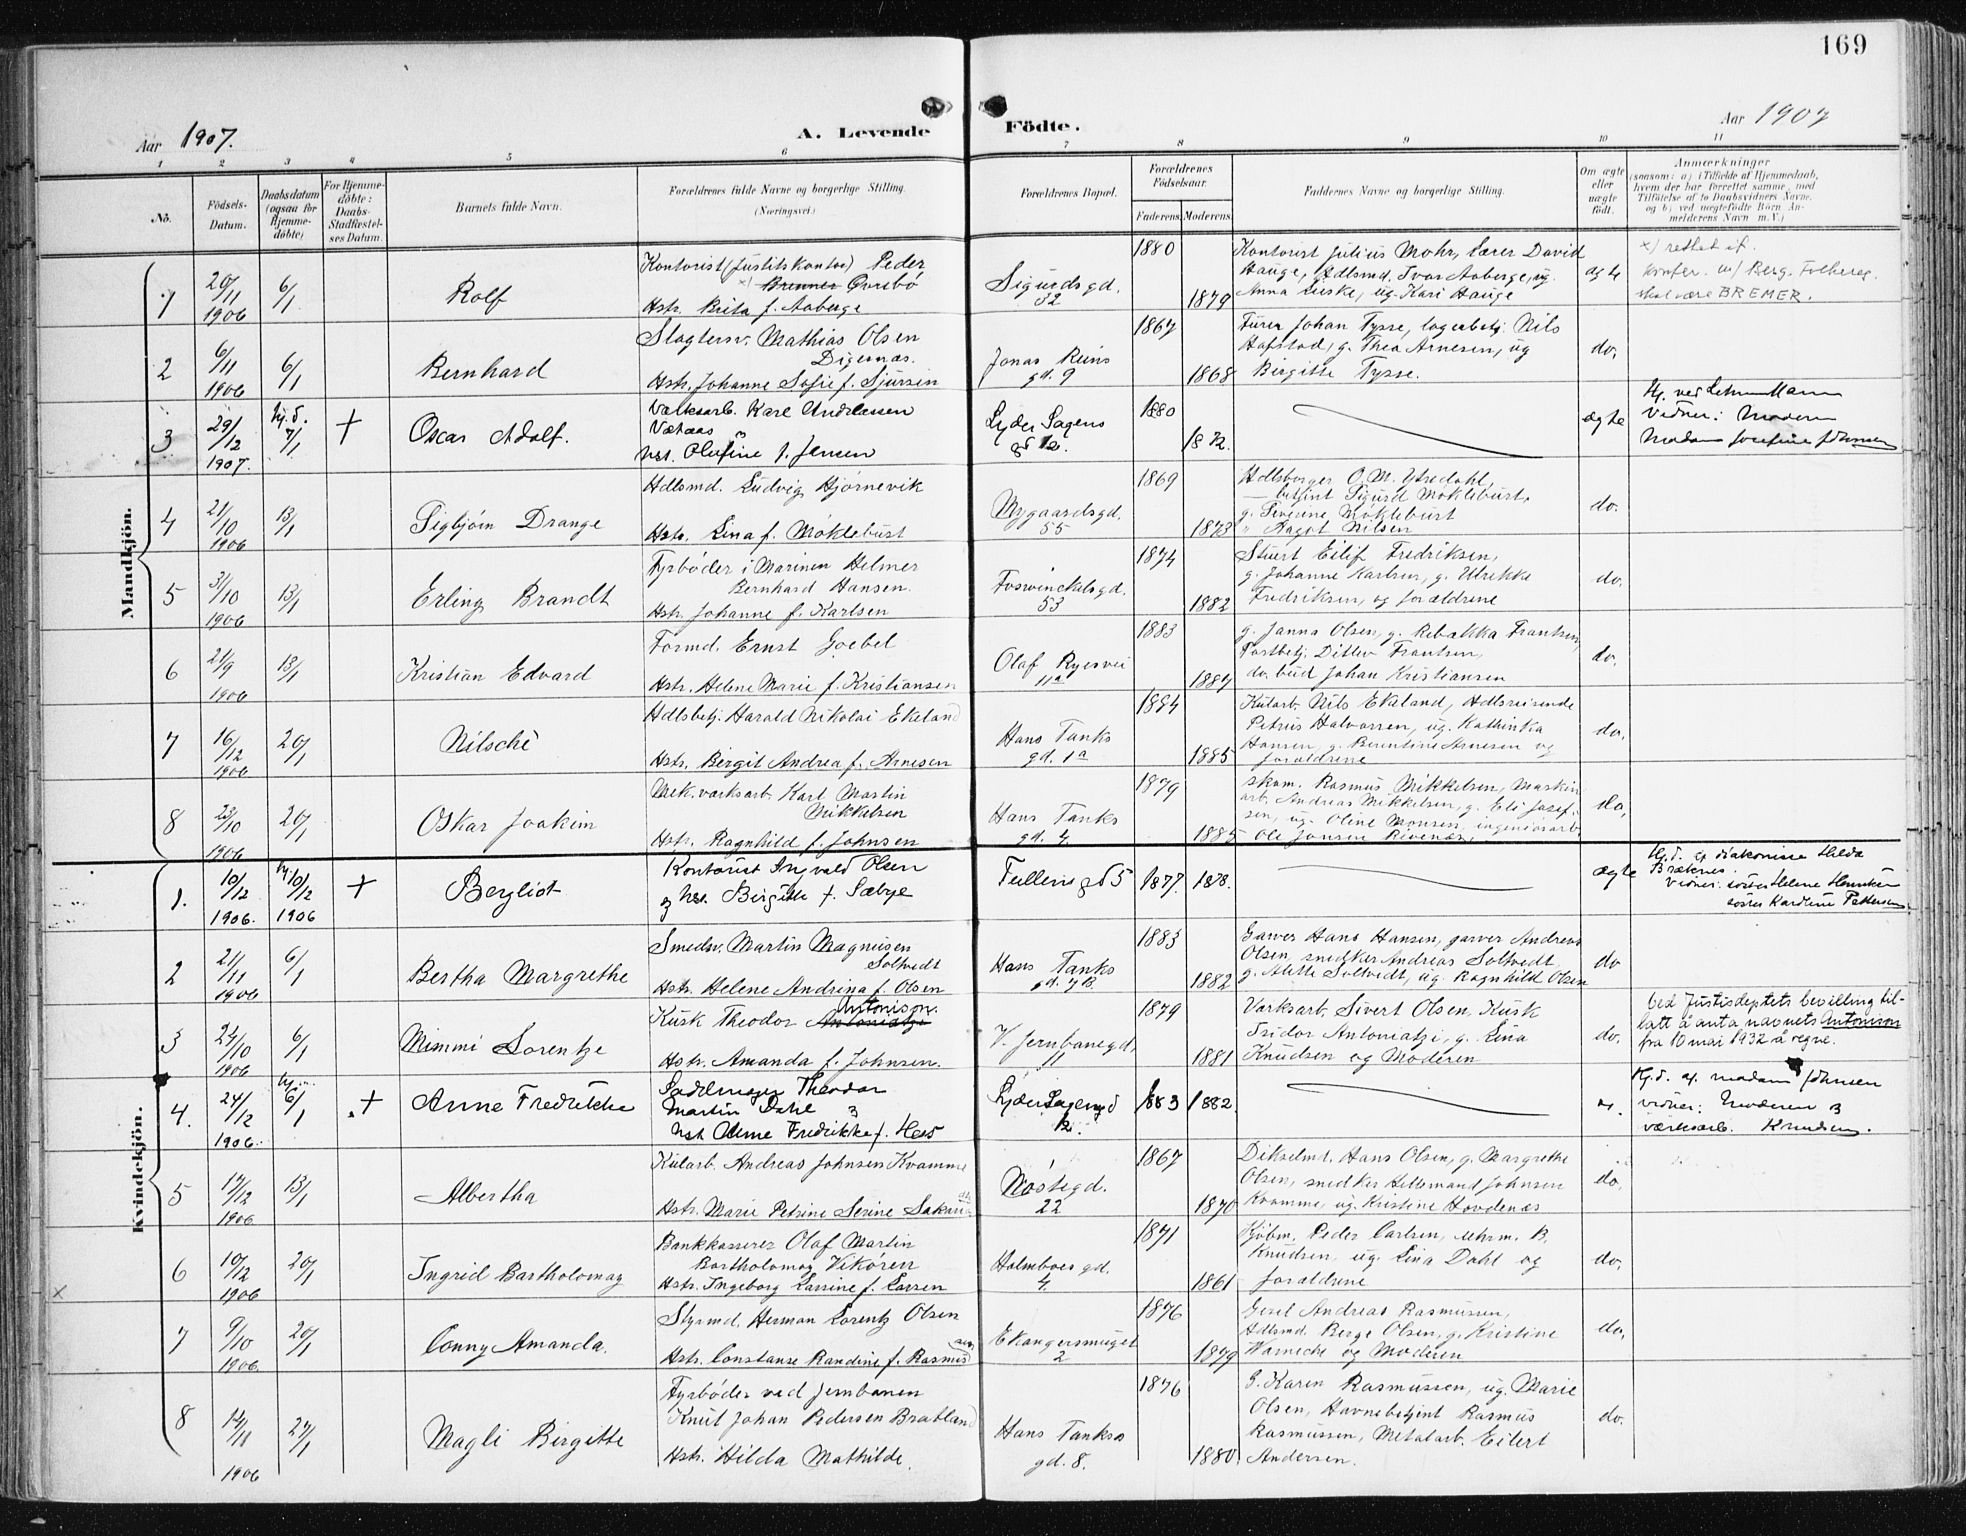 169
Aar 1907.
A. Levende
Födte.
Aar 1907
1 2 3 4 5 6 7 8 9 10 11
No.
Födsels-
Datum.
Daabsdatum
(ogsaa for
Hjemme-
döbte)
For Hjemme-
döbte:
Daabs-
Stadfæstel-
ses Datum.
Barnets fulde Navn.
Forældrenes fulde Navne og borgerlige Stilling.
(Næringsvei.)
Forældrenes Bopæl.
Forældrenes
Födselsaar.
Faderens. Moderens.
Faddernes Navne og borgerlige Stilling.
Om ægte
eller
uægte
födt.
Anmærkninger
(saasom: a) i Tilfælde af Hjemmedaab,
hvem der har forrettet samme, med
Tilföielse af to Daabsvidners Navne,
og b) ved uægtefödte Börn An-
melderens Navn m. V.)
Mandkjön.
1 20/11 1906 6/1 Rolf
Kontorist (Justitskontor) Peder
x) Bremer Øvrebö
Hstr. Brita f. Aaberge
Sigurdsgd.
32
1880 1879
Kontorist Julius Mohr, Lærer David
Hauge, Hdlsmd. Ivar Aaberge, ug.
Anna Liske, ug. Kari Hauge
ægte
x) rettet if.
konfer. m/ Berg. Folkereg.
skal være BREMER.
2 6/11 1906 6/1 Bernhard
Slagtersv. Mathias Olsen
Digernæs.
Hstr. Johanne Sofie f. Sjursen
Jonas Reins
gd. 9
1867 1868
Furer Johan Tysse, lagerbetj. Nils
Hafstad, g. Thea Arnesen, ug
Birgitte Tysse.
do.
3 29/12 1907. hj.d. 7/1 + Oscar Adolf.
Værksarb. Karl Andreassen
Vataas
hst. Olufine f. Jensen
Lyder Sagens
gd 12.
1880 1872.
ægte
Vidner: Moderen
Madam Josefine Johnsen
4 21/10 1906 13/1 Sigbjörn Drange
Hdlsmd. Ludvig Hjørnevik
Hstr. Lina f. Møklebust
Nygaardsgd.
55
1869 1873
Hdlsborger O. M. Ytredahl,
— betjent Sigurd Møklebust,
g. Severine Møklebust
" Aagot Nilsen
do.
5 31/10 1906 13/1 Erling Brandt
Fyrböder i Marinen Helmer
Bernhard Hansen.
Hstr. Johanne f. Karlsen
Foswinckelsgd.
53
1874 1882
Stuert Eilif Fredriksen,
g. Johanne Karlsen, g. Ulrikke
Fredriksen, og forældrene
do.
6 21/9 1906 13/1 Kristian Edvard
Formd. Ernst Goebel
Hstr. Helene Marie f. Kristiansen
Olaf Ryesvei
11a
1883 1884
g. Janna Olsen, g. Rebakka Frantsen,
Postbetj. Ditlev Frantsen,
do. bud Johan Kristiansen
do.
7 16/12 1906 20/1 Nilsché
Hdlsbetj. Harald Nikolai Ekeland
Hstr. Birgit Andrea f. Arnesen
Hans Tanks
gd. 1a
1884 1885
Kularb. Nils Ekeland, Hdlsreisende
Petrus Halvorsen, ug. Kathinka
Hansen, g. Berentine Arnesen og
forældrene
do.
8 23/10 1906 20/1 Oskar Joakim
Mek. værksarb. Karl Martin
Mikkelsen
Hstr. Ragnhild f. Johnsen
Hans Tanks
gd. 4
1879 1885
skom. Rasmus Mikkelsen, Maskin
arb. Andreas Mikkelsen, g. Eli Josef-
sen, ug. Oline Monsen, ingeniörarb
Ole Jonsen Rivenæs.
do.
Kvindekjön.
1. 10/12 1906. hj. 10/12 1906 + Bergliot
Kontorist Ingvald Olsen
og hst. Birgitte f. Sæbye
Tullensgd 5
1877. 1878.
ægte
Hj.d. af diakonisse Hilda
Bræknes.
Vidner: söster Helene Henriksen
söster Karoline Pettersen.
2 21/11 1906 6/1 Bertha Margrethe
Smedsv. Martin Magnusen
Soltvedt
Hstr. Helene Andrina f. Olsen
Hans Tanks
gd. 7B
1883 1882
Garver Hans Hansen, garver Andreas
Olsen, snedker Andreas Soltvedt
g. Mette Soltvedt, ug. Ragnhild Olsen
do
3 24/10 1906 6/1 Mimmi Lorentze
Antonison.
Kusk Theodor
Hstr. Amanda f. Johnsen.
V. Jernbanegd,
11
1879 1881
Værksarb. Sivert Olsen, Kusk
Isidor Antoniatzi, g. Lina
Knudsen og Moderen
do.
Ved Justisdeptets bevilling til-
latt å anta navnet Antonison
fra 10 mai 1932 å regne.
4. 24/12 1906. 6/1 + Anne Fredrikke
Sadelmager Theodor
Martin Dahl
hst Anne Fredrikke f. Hess
Lyder Sagensgd
12.
1883 1882.
Hj.d. af madam Johnsen
vidner: Moderen
værksarb. Knudsen.
5 17/12 1906 13/1 Albertha
Kularb. Andreas Johnsen Kvamme
Hstr. Marie Petrine Serine
Nöstegd.
22
1867 1870
Dikselmt. Hans Olsen, g. Margrethe
Olsen, snedker Hillemand Johnsen
Kvamme, ug. Kristine Hovdenæs
do.
6 10/12 1906 20/1 Ingrid Bartholomay
Bankkasserer Olaf Martin
Bartholomay Vikören
Hstr. Ingeborg Larsine f. Larsen
Holmboesgd.
4.
1871 1861
Kjöbm. Peder Carlsen, uhrm. B.
Knudsen, ug. Lina Dahl og
forældrene
do.
x
7 9/10 1906 20/1 Conny Amanda.
Styrmd. Herman Lorentz Olsen
Hstr. Constanse Randine f. Rasmussen
Ekangersmuget
2
1876 1879
Gesel Andreas Rasmussen,
Hdlsmd. Berge Olsen, g. Kristine
Warneche og Moderen
do.
8 14/11 1906 27/1 Magli Birgitte
Fyrböder ved Jernbanen
Knut Johan Pedersen Bratland
Hstr. Hilda Mathilde.
Hans Tanks
gd. 8.
1876 1880
G. Karen Rasmussen, ug. Marie
Olsen, Havnebetjent Rasmus
Rasmussen, Metalarb. Eilert
Andersen.
do.